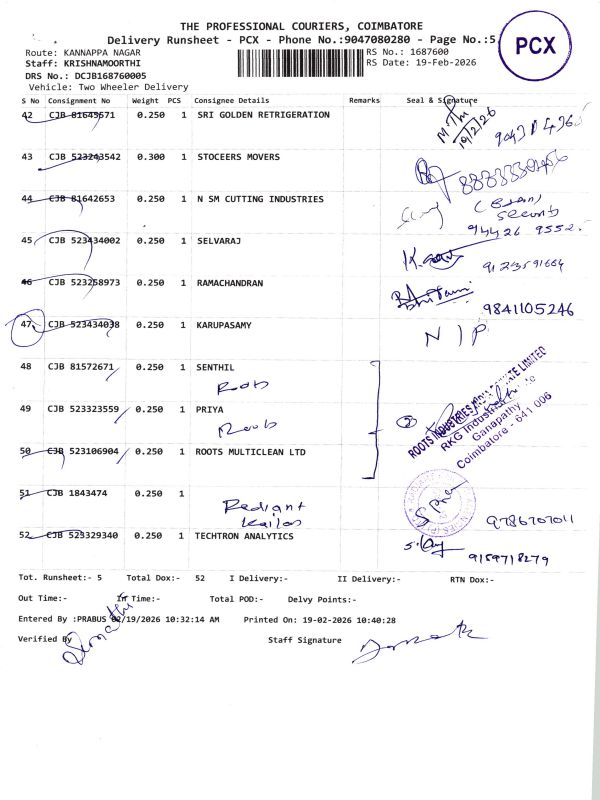 THE PROFESSIONAL COURIERS, COIMBATORE
Delivery Runsheet - PCX - Phone No.:9047080280 - Page No.:5
PCX
Route: KANNAPPA NAGAR
RS No.: 1687600
Staff: KRISHNAMOORTHI
RS Date: 19-Feb-2026
DRS No.: DCJB168760005
Vehicle: Two Wheeler Delivery
S No Consignment No Weight PCS Consignee Details Remarks Seal & Signature
42 CJB 81645571 0.250 1 SRI GOLDEN RETRIGERATION
43 CJB 523243542 0.300 1 STOCEERS MOVERS
44 CJB 81642653 0.250 1 N SM CUTTING INDUSTRIES
94426 9552
45 CJB 523434002 0.250 1 SELVARAJ
46 CJB 523258973 0.250 1 RAMACHANDRAN
9841105246
47 CJB 523434038 0.250 1 KARUPASAMY
N I P
48 CJB 81572671 0.250 1 SENTHIL
49 CJB 523323559 0.250 1 PRIYA
ROOTS INDUSTRIES INDIA PRIVATE LIMITED
RKG Industrial
Ganapathy
Coimbatore - 641 006
50 CJB 523106904 0.250 1 ROOTS MULTICLEAN LTD
51 CJB 1843474 0.250 1
Radiant
9786707011
52 CJB 523329340 0.250 1 TECHTRON ANALYTICS
9159718279
Tot. Runsheet:- 5 Total Dox:- 52 I Delivery:- II Delivery:- RTN Dox:-
Out Time:- In Time:- Total POD:- Delvy Points:-
Entered By :PRABUS 02/19/2026 10:32:14 AM Printed On: 19-02-2026 10:40:28
Verified By Staff Signature